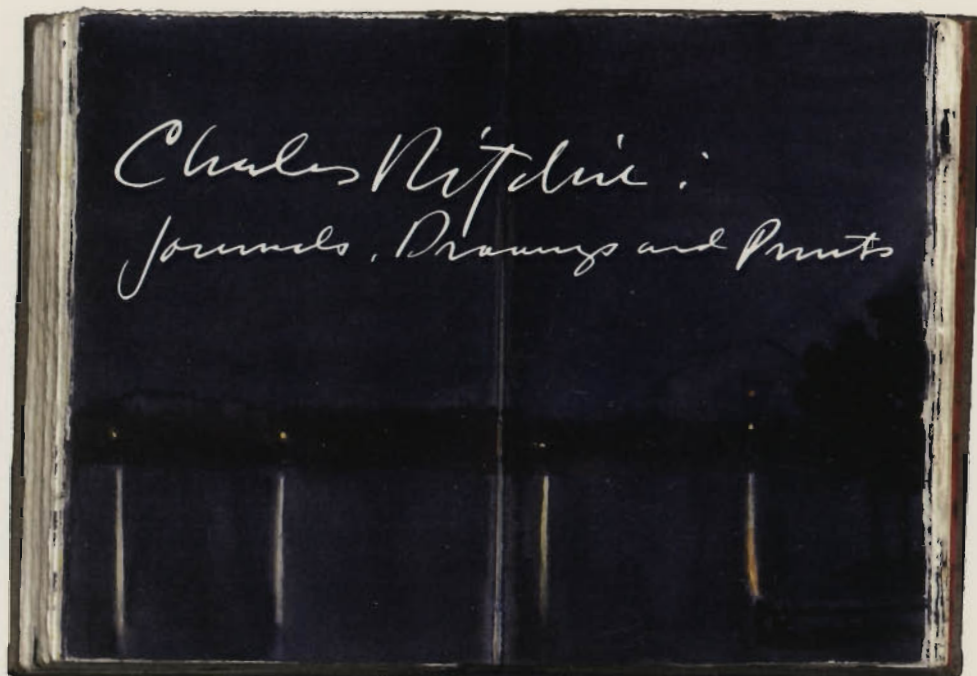 Charles Ritchie:
Journals, Drawings and Prints